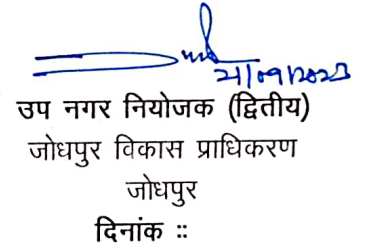 21/09/2023
उप नगर नियोजक (द्वितीय)
जोधपुर विकास प्राधिकरण
जोधपुर
दिनांक ::